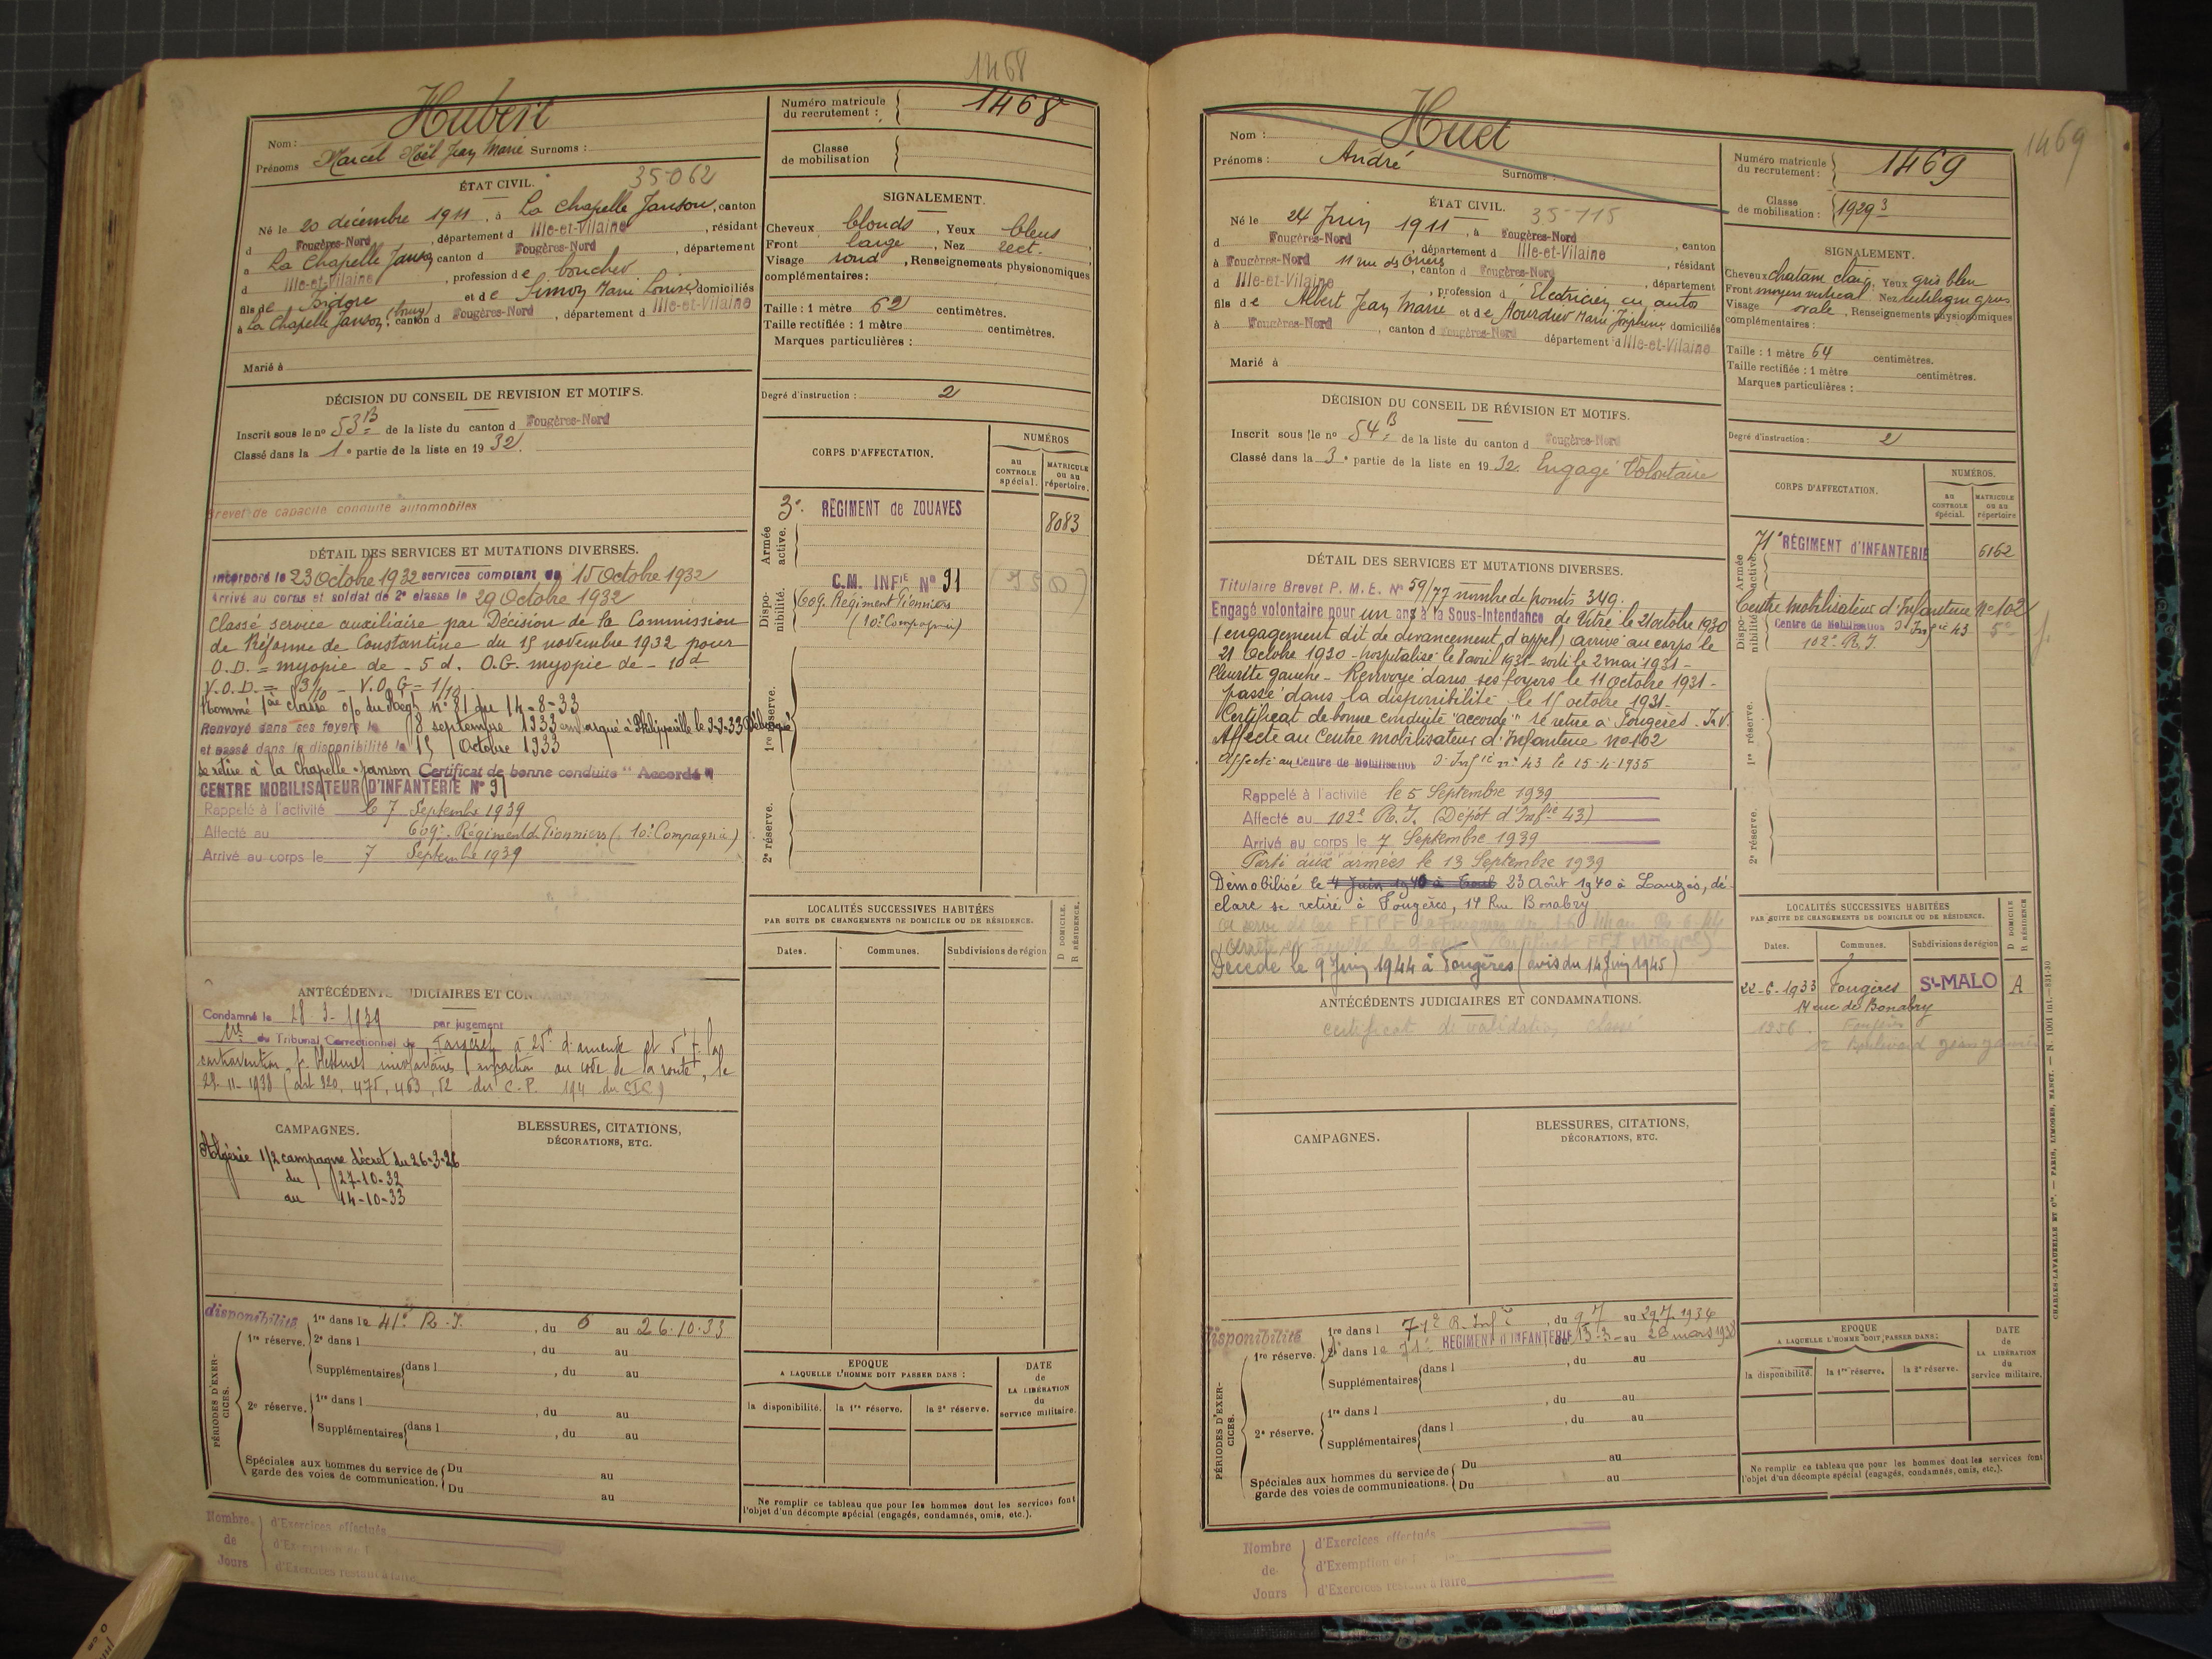 1468
Hubert
Nom :
Prénoms Marcel Noël Jean Marie Surnoms :
ÉTAT CIVIL.
35-062
Né le 20 décembre 1911, à La Chapelle Janson, canton
d Fougères-Nord, département d Ille-et-Vilaine, résidant
à La Chapelle Janson, canton d Fougères-Nord, département
d Ille-et-Vilaine, profession de boucher
fils de Isidore et de Simon Marie Louise domiciliés
à La Chapelle Janson (bourg), canton d Fougères-Nord, département d Ille-et-Vilaine
Marié à
DÉCISION DU CONSEIL DE REVISION ET MOTIFS.
Inscrit sous le no 53 B de la liste du canton d Fougères-Nord
Classé dans la 1e partie de la liste en 1932.
Brevet de capacité conduite automobiles
DÉTAIL DES SERVICES ET MUTATIONS DIVERSES.
Incorporé le 23 Octobre 1932 services comptant du 15 Octobre 1932
Arrivé au corps et soldat de 2e classe le 29 Octobre 1932
Classé service auxiliaire par Décision de la Commission
de Réforme de Constantine du 15 novembre 1932 pour
O.D. = myopie de - 5 d. O.G. myopie de - 10 d
V.O.D. = 3/10 - V.O.G = 1/10 -
Nommé 1ère classe o/ du Régt n° 81 du 14-8-33
Renvoyé dans ses foyers le 8 septembre 1933 embarqué à Philippeville le 9-9-33 Débarqué
et passé dans la disponibilité le 15 Octobre 1933
se retire à la Chapelle-Janson Certificat de bonne conduite "Accordé"
CENTRE MOBILISATEUR D'INFANTERIE N° 91
Rappelé à l'activité le 7 Septembre 1939
Affecté au 609e Régiment de Pionniers (10e Compagnie)
Arrivé au corps le 7 Septembre 1939
ANTÉCÉDENTS JUDICIAIRES ET CONDAMNATIONS
Condamné le 28-3-1939 par jugement
du Tribunal Correctionnel de à 25f d'amende et 5f. pr
contravention, pr blessures involontaires infraction au code de la route, le
29-11-1938 (art 320, 475, 463, 52 du C.P. 194 du CIC)
CAMPAGNES.
Algérie 1/2 campagne décret du 26-3-26
du 27-10-32
au 14-10-33
BLESSURES, CITATIONS,
DÉCORATIONS, ETC.
PÉRIODES D'EXERCICES.
disponibilité
1re réserve.
1re dans le 41e R.I., du 6 au 26.10.33
2e dans l , du au
Supplémentaires dans l , du au
2e réserve.
1re dans l , du au
Supplémentaires dans l , du au
Spéciales aux hommes du service de garde des voies de communication. Du au
Du au
Nombre de Jours
d'Exercices effectués
d'Exemption de
d'Exercices restant à faire
Numéro matricule
du recrutement : 1468
Classe
de mobilisation
SIGNALEMENT.
Cheveux blonds, Yeux bleus,
Front large, Nez rect.
Visage rond, Renseignements physionomiques
complémentaires :
Taille : 1 mètre 62 centimètres.
Taille rectifiée : 1 mètre centimètres.
Marques particulières :
Degré d'instruction : 2
CORPS D'AFFECTATION.
NUMÉROS
au CONTROLE spécial.
MATRICULE ou au répertoire.
Armée active.
3e RÉGIMENT de ZOUAVES 8083
Disponibilité.
C.M. INFIE N° 91
609e Régiment Pionniers
(10e Compagnie)
1re réserve.
2e réserve.
LOCALITÉS SUCCESSIVES HABITÉES
PAR SUITE DE CHANGEMENTS DE DOMICILE OU DE RÉSIDENCE.
D DOMICILE.
R RÉSIDENCE.
Dates. Communes. Subdivisions de région
EPOQUE
A LAQUELLE L'HOMME DOIT PASSER DANS :
la disponibilité. la 1re réserve. la 2e réserve.
DATE
de
LA LIBÉRATION
du
service militaire.
Ne remplir ce tableau que pour les hommes dont les services font
l'objet d'un décompte spécial (engagés, condamnés, omis, etc.).
1469
Huet
Nom :
Prénoms : André Surnoms :
ÉTAT CIVIL.
35-115
Né le 24 Juin 1911, à Fougères-Nord, canton
d Fougères-Nord, département d Ille-et-Vilaine, résidant
à Fougères-Nord 11 rue des, canton d Fougères-Nord, département
d Ille-et-Vilaine, profession d'Electricien en autos
fils de Albert Jean Marie et de Hourdier Marie Joséphine domiciliés
à Fougères-Nord, canton d Fougères-Nord département d Ille-et-Vilaine
Marié à
DÉCISION DU CONSEIL DE RÉVISION ET MOTIFS.
Inscrit sous le no 54 B de la liste du canton d Fougères-Nord
Classé dans la 3e partie de la liste en 1932. Engagé Volontaire
DÉTAIL DES SERVICES ET MUTATIONS DIVERSES.
Titulaire Brevet P. M. E. N° 59/77 nombre de points 349.
Engagé volontaire pour un an à la Sous-Intendance de Vitré le 21 octobre 1930
(engagement dit de devancement d'appel) arrivé au corps le
21 Octobre 1930 - hospitalisé le 8 avril 1931 - sorti le 2 mai 1931 -
Pleurite gauche - Renvoyé dans ses foyers le 11 octobre 1931 -
passé dans la disponibilité le 15 octobre 1931 -
Certificat de bonne conduite "accordé" se retire à Fougères. I.V.
Affecté au Centre mobilisateur d'Infanterie n° 102
Affecté au Centre de Mobilisation d'Infie n° 43 le 15-4-1935
Rappelé à l'activité le 5 Septembre 1939
Affecté au 102e R.I. (Dépôt d'Infie 43)
Arrivé au corps le 7 Septembre 1939
Parti aux armées le 13 Septembre 1939
Démobilisé le 4 Juin 1940 à 23 Août 1940 à Lauzès, dé-
clare se retirer à Fougères, 14 Rue Bonabry
A servi FTPF de Fougères du
Décédé le 9 Juin 1944 à Fougères (avis du 14 Juin 1945)
ANTÉCÉDENTS JUDICIAIRES ET CONDAMNATIONS.
certificat de validation classé
CAMPAGNES.
BLESSURES, CITATIONS,
DÉCORATIONS, ETC.
PÉRIODES D'EXERCICES.
Disponibilité
1re réserve.
1re dans l 71e R. Infie, du 9.7 au 29.7.1936
2e dans le 71e RÉGIMENT D'INFANTERIE du 13-3- au 26 mars 1938
Supplémentaires dans l , du au
2e réserve.
1re dans l , du au
Supplémentaires dans l , du au
Spéciales aux hommes du service de garde des voies de communications. Du au
Du au
Nombre de Jours
d'Exercices effectués
d'Exemption de
d'Exercices restant à faire
Numéro matricule
du recrutement : 1469
Classe
de mobilisation : 1929 3
SIGNALEMENT.
Cheveux chatain clair, Yeux gris bleu
Front moyen vertical Nez rectiligne gros
Visage ovale, Renseignements physionomiques
complémentaires :
Taille : 1 mètre 64 centimètres.
Taille rectifiée : 1 mètre centimètres.
Marques particulières :
Degré d'instruction : 2
CORPS D'AFFECTATION.
NUMÉROS.
au CONTROLE spécial.
MATRICULE ou au répertoire
Armée active.
71e RÉGIMENT d'INFANTERIE 6162
Disponibilité.
Centre mobilisateur d'Infanterie N° 102
Centre de Mobilisation d'Infie 43
102e R.I.
1re réserve.
2e réserve.
LOCALITÉS SUCCESSIVES HABITÉES
PAR SUITE DE CHANGEMENTS DE DOMICILE OU DE RÉSIDENCE.
D DOMICILE
R RÉSIDENCE
Dates. Communes. Subdivisions de région
22-6-1933 Fougères St-MALO A
14 rue de Bonabry
1936. Fougères
12 Boulevard Jean Janvier
EPOQUE
A LAQUELLE L'HOMME DOIT PASSER DANS :
la disponibilité. la 1re réserve. la 2e réserve.
DATE
de
LA LIBÉRATION
du
service militaire.
Ne remplir ce tableau que pour les hommes dont les services font
l'objet d'un décompte spécial (engagés, condamnés, omis, etc.).
CHARLES-LAVAUZELLE ET Cie. — PARIS, LIMOGES, NANCY.